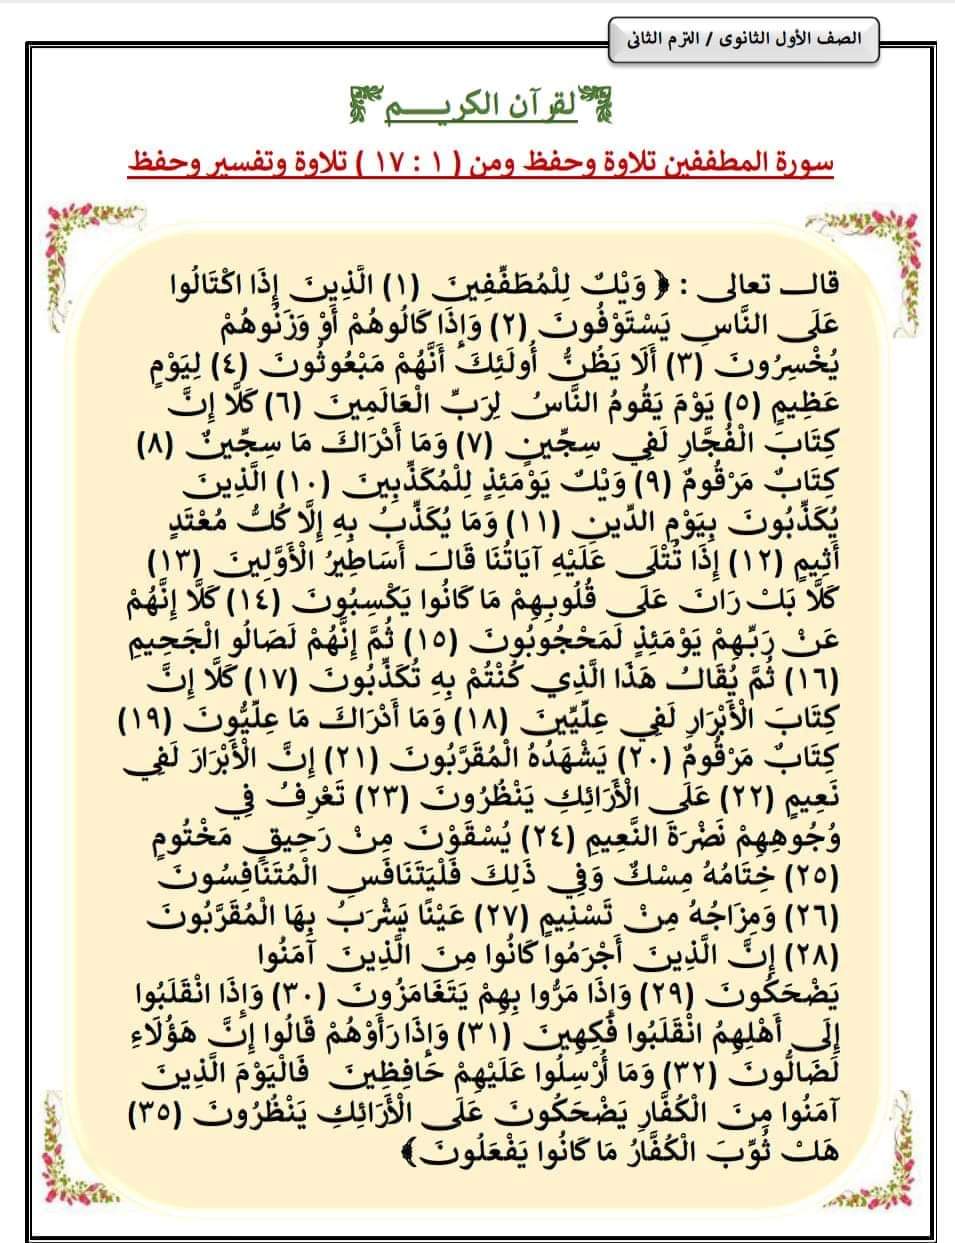 الصف الأول الثانوى / الترم الثانى
لقرآن الكريـــم
سورة المطففين تلاوة وحفظ ومن ( ١ : ١٧ ) تلاوة وتفسير وحفظ
قال تعالى : ﴿ وَيْلٌ لِلْمُطَفِّفِينَ (١) الَّذِينَ إِذَا اكْتَالُوا
عَلَى النَّاسِ يَسْتَوْفُونَ (٢) وَإِذَا كَالُوهُمْ أَوْ وَزَنُوهُمْ
يُخْسِرُونَ (٣) أَلَا يَظُنُّ أُولَئِكَ أَنَّهُمْ مَبْعُوثُونَ (٤) لِيَوْمٍ
عَظِيمٍ (٥) يَوْمَ يَقُومُ النَّاسُ لِرَبِّ الْعَالَمِينَ (٦) كَلَّا إِنَّ
كِتَابَ الْفُجَّارِ لَفِي سِجِّينٍ (٧) وَمَا أَدْرَاكَ مَا سِجِّينٌ (٨)
كِتَابٌ مَرْقُومٌ (٩) وَيْلٌ يَوْمَئِذٍ لِلْمُكَذِّبِينَ (١٠) الَّذِينَ
يُكَذِّبُونَ بِيَوْمِ الدِّينِ (١١) وَمَا يُكَذِّبُ بِهِ إِلَّا كُلُّ مُعْتَدٍ
أَثِيمٍ (١٢) إِذَا تُتْلَى عَلَيْهِ آيَاتُنَا قَالَ أَسَاطِيرُ الْأَوَّلِينَ (١٣)
كَلَّا بَلْ رَانَ عَلَى قُلُوبِهِمْ مَا كَانُوا يَكْسِبُونَ (١٤) كَلَّا إِنَّهُمْ
عَنْ رَبِّهِمْ يَوْمَئِذٍ لَمَحْجُوبُونَ (١٥) ثُمَّ إِنَّهُمْ لَصَالُو الْجَحِيمِ
(١٦) ثُمَّ يُقَالُ هَذَا الَّذِي كُنْتُمْ بِهِ تُكَذِّبُونَ (١٧) كَلَّا إِنَّ
كِتَابَ الْأَبْرَارِ لَفِي عِلِّيِّينَ (١٨) وَمَا أَدْرَاكَ مَا عِلِّيُّونَ (١٩)
كِتَابٌ مَرْقُومٌ (٢٠) يَشْهَدُهُ الْمُقَرَّبُونَ (٢١) إِنَّ الْأَبْرَارَ لَفِي
نَعِيمٍ (٢٢) عَلَى الْأَرَائِكِ يَنْظُرُونَ (٢٣) تَعْرِفُ فِي
وُجُوهِهِمْ نَضْرَةَ النَّعِيمِ (٢٤) يُسْقَوْنَ مِنْ رَحِيقٍ مَخْتُومٍ
(٢٥) خِتَامُهُ مِسْكٌ وَفِي ذَلِكَ فَلْيَتَنَافَسِ الْمُتَنَافِسُونَ
(٢٦) وَمِزَاجُهُ مِنْ تَسْنِيمٍ (٢٧) عَيْنًا يَشْرَبُ بِهَا الْمُقَرَّبُونَ
(٢٨) إِنَّ الَّذِينَ أَجْرَمُوا كَانُوا مِنَ الَّذِينَ آمَنُوا
يَضْحَكُونَ (٢٩) وَإِذَا مَرُّوا بِهِمْ يَتَغَامَزُونَ (٣٠) وَإِذَا انْقَلَبُوا
إِلَى أَهْلِهِمُ انْقَلَبُوا فَكِهِينَ (٣١) وَإِذَا رَأَوْهُمْ قَالُوا إِنَّ هَؤُلَاءِ
لَضَالُّونَ (٣٢) وَمَا أُرْسِلُوا عَلَيْهِمْ حَافِظِينَ فَالْيَوْمَ الَّذِينَ
آمَنُوا مِنَ الْكُفَّارِ يَضْحَكُونَ عَلَى الْأَرَائِكِ يَنْظُرُونَ (٣٥)
هَلْ ثُوِّبَ الْكُفَّارُ مَا كَانُوا يَفْعَلُونَ﴾